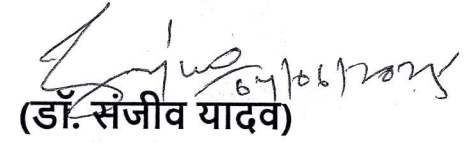 04/06/2025
(डॉ. संजीव यादव)